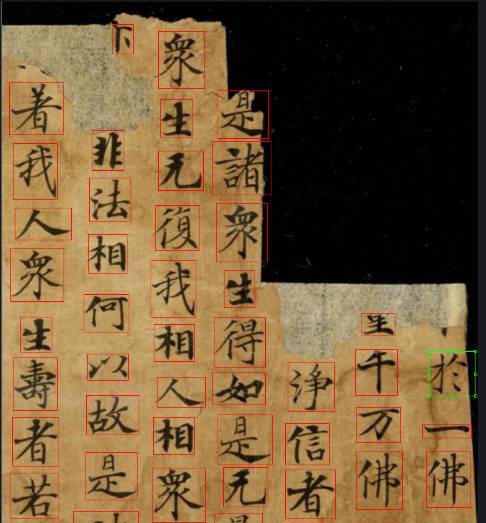 於一佛
千万佛
淨信者
是諸衆生得如是无
衆生无復我相人相衆
非法相何以故是
着我人衆生壽者若